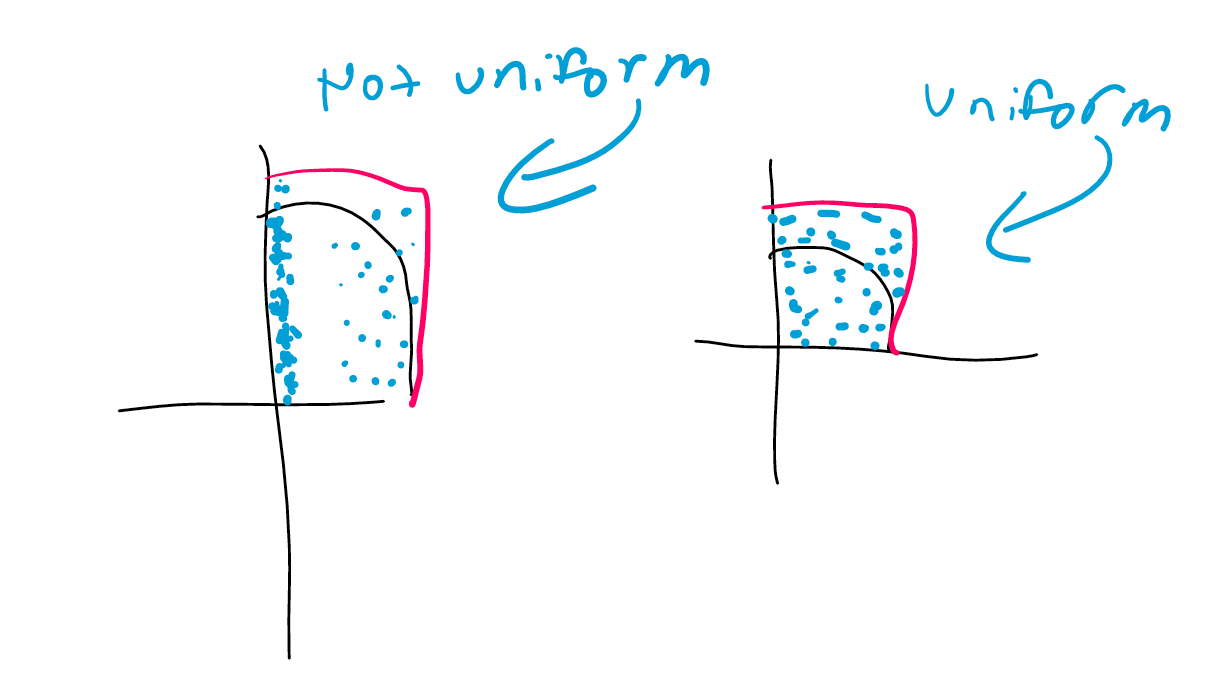 Not uniform
uniform